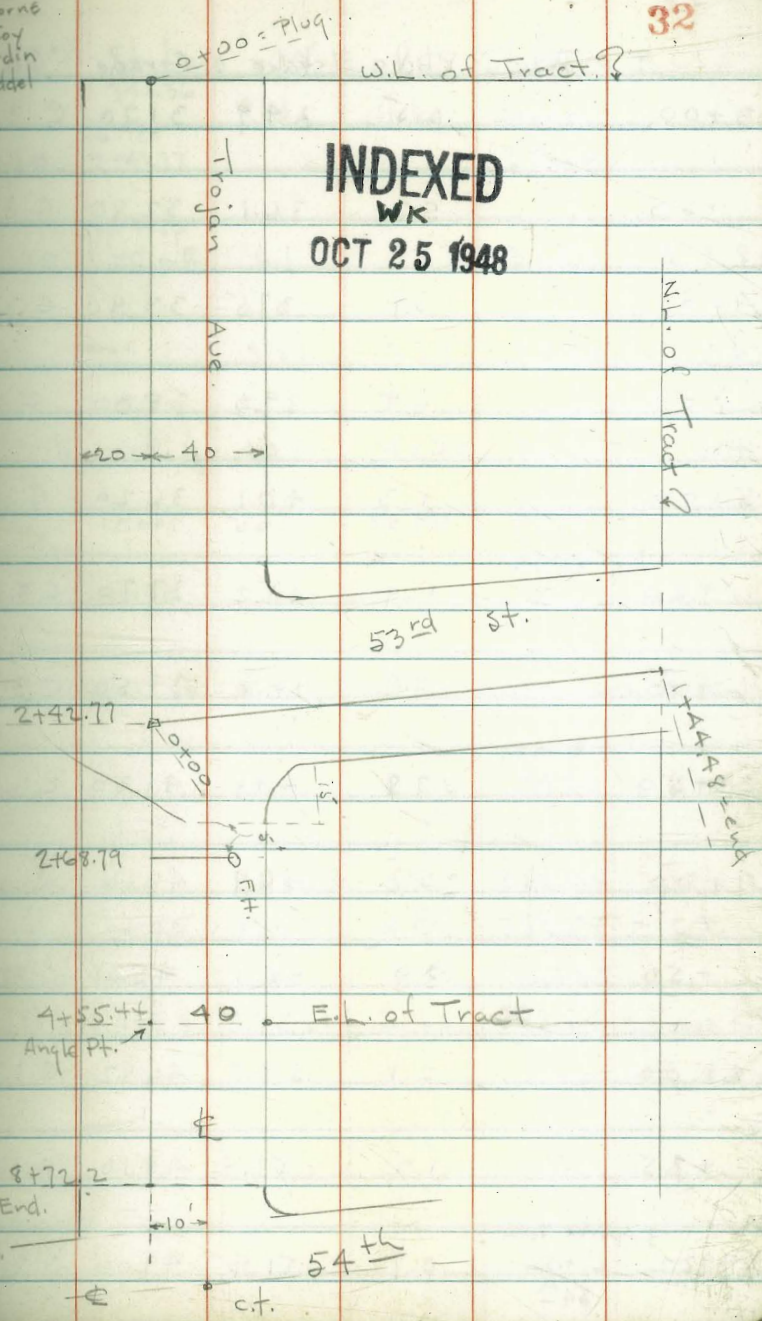 32
0+00 = Plug.
W.L. of Tract.
INDEXED
WK
OCT 25 1948
Trojan Ave.
N.L. of Tract
20 40
53rd St.
2+42.77
0+00
1+44.48 = end
15'
2+68.79
F.H.
4+55.44
40
E.L. of Tract
Angle Pt.
℄
8+72.2
End.
10'
54th
℄
c.t.